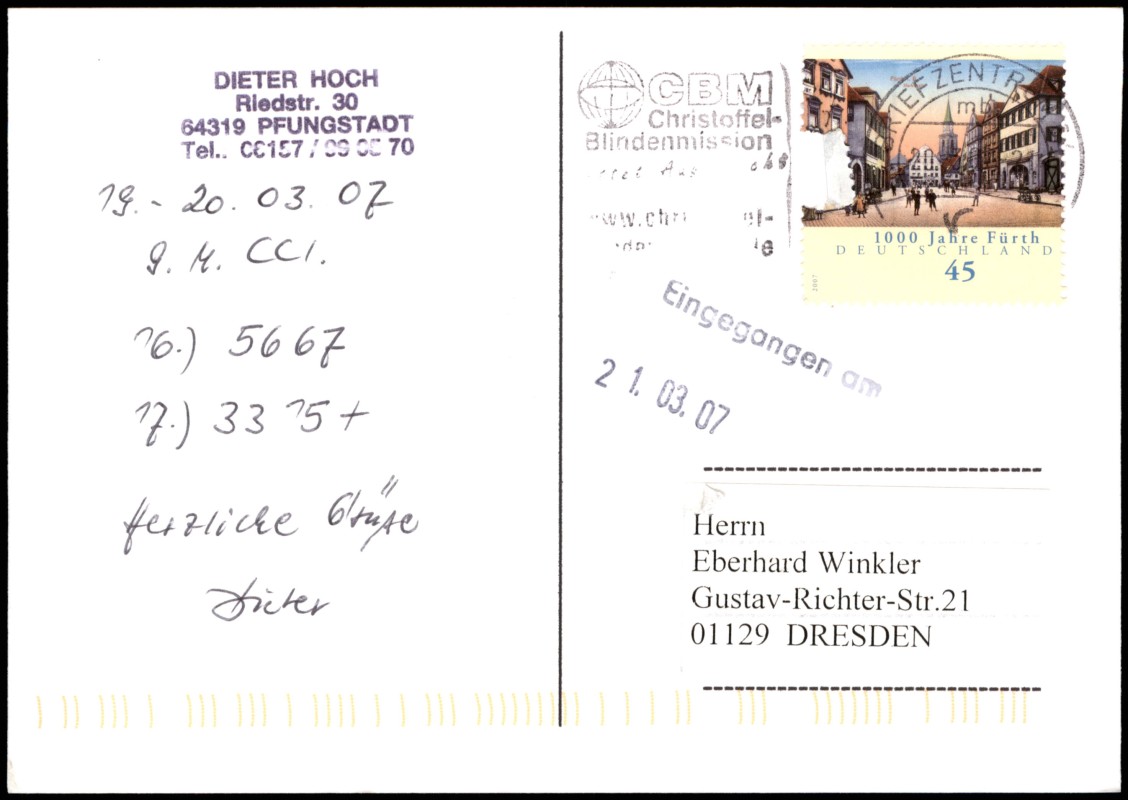 DIETER HOCH
Riedstr. 30
64319 PFUNGSTADT
Tel.. 70
19.- 20. 03. 07
g. M. CCI.
16.) 5667
17.) 3315+
Herzliche Grüße
Dieter
CBM
Christoffel-
Blindenmission
BRIEFZENTR
1000 Jahre Fürth
DEUTSCHLAND
45
2007
Eingegangen am
21. 03. 07
Herrn
Eberhard Winkler
Gustav-Richter-Str.21
01129 DRESDEN